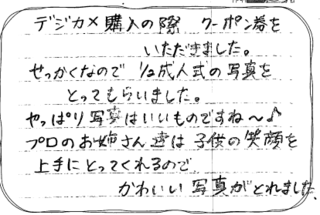 デジカメ購入の際 クーポン券を
いただきました。
せっかくなので 1/2成人式の写真を
とってもらいました。
やっぱり写真はいいものですね〜♪
プロのお姉さん達は子供の笑顔を
上手にとってくれるので
かわいい写真がとれました。